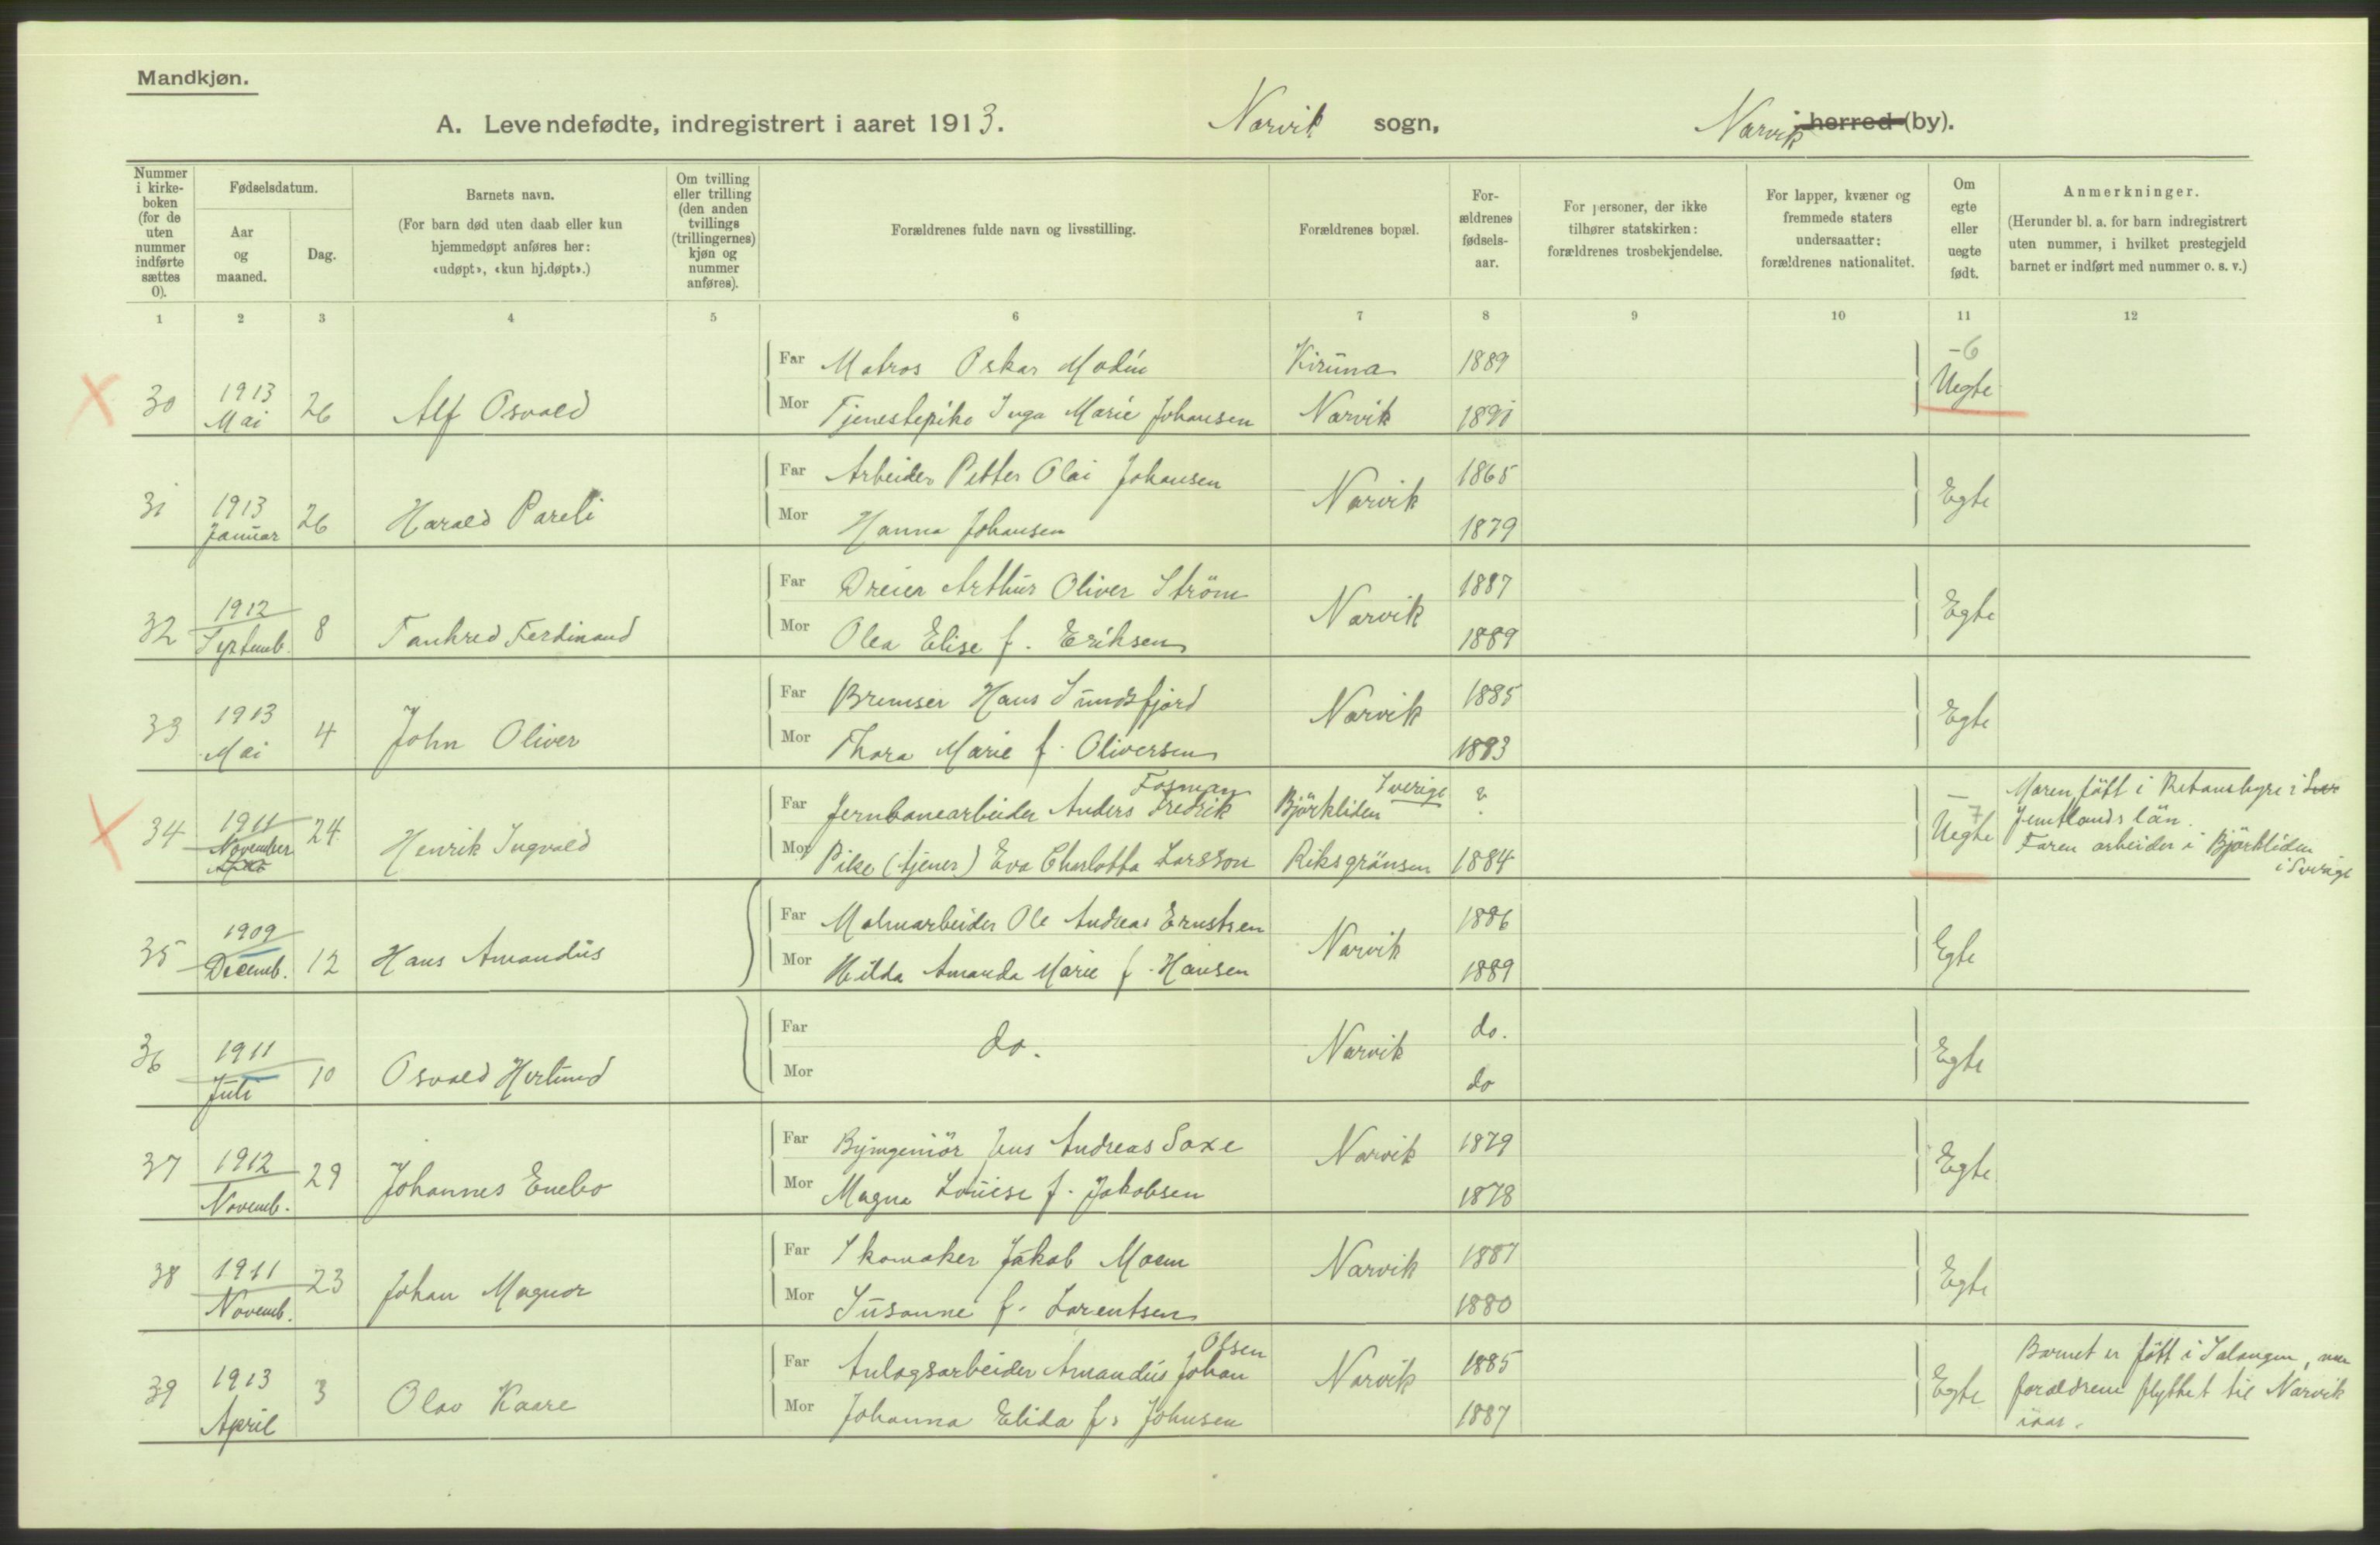 Mandkjøn.
A. Levendefødte, indregistrert i aaret 1913. Narvik sogn, Narvik herred (by).
Nummer i kirke-boken (for de uten nummer indførte sættes 0).
Fødselsdatum.
Aar og maaned.
Dag.
Barnets navn.
(For barn død uten daab eller kun hjemmedøpt anføres her: «udøpt», «kun hj.døpt».)
Om tvilling eller trilling (den anden tvillings (trillingernes) kjøn og nummer anføres).
Forældrenes fulde navn og livsstilling.
Forældrenes bopæl.
For-ældrenes fødsels-aar.
For personer, der ikke tilhører statskirken: forældrenes trosbekjendelse.
For lapper, kvæner og fremmede staters undersaatter: forældrenes nationalitet.
Om egte eller uegte født.
Anmerkninger.
(Herunder bl. a. for barn indregistrert uten nummer, i hvilket prestegjeld barnet er indført med nummer o. s. v.)
1 2 3 4 5 6 7 8 9 10 11 12
30 1913 Mai 26 Alf Osvald
Far Matros Oskar Modin Kiruna 1889
Mor Tjenestepike Inga Marie Johansen Narvik 1891
-6 Uegte
31 1913 Januar 26 Harald Pareli
Far Arbeider Petter Olai Johansen Narvik 1865
Mor Hanna Johansen 1879
Egte
32 1912 Septemb. 8 Tankred Ferdinand
Far Dreier Arthur Oliver Ström Narvik 1887
Mor Olea Elise f. Eriksen 1889
Egte
33 1913 Mai 4 John Oliver
Far Bremser Hans Sundsfjord Narvik 1885
Mor Thora Marie f. Oliversen 1883
Egte
34 1911 November 24 Henrik Ingvald
Far Jernbanearbeider Anders Fredrik Fosman Björkliden Sverige ?
Mor Pike (tjener) Eva Charlotta Larsson Riksgränsen 1884
-7 Uegte
Moren fött i i Sver
Jemtlands län.
Faren arbeider i Björkliden
i Sverige
35 1909 Decemb. 12 Hans Amandus
Far Malmarbeider Ole Andreas Ernstsen Narvik 1886
Mor Hilda Amanda Marie f. Hansen 1889
Egte
36 1911 Juli 10 Osvald Herlund
Far do. Narvik do.
Mor do
Egte
37 1912 Novemb. 29 Johannes Enebo
Far Byingeniör Jens Andreas Saxe Narvik 1879
Mor Magna Louise f. Jakobsen 1878
Egte
38 1911 Novemb. 23 Johan Magnor
Far Skomaker Jakob Moen Narvik 1887
Mor Susanne f. Lorentsen 1880
Egte
39 1913 April 3 Olav Kaare
Far Anlagsarbeider Amandus Johan Olsen Narvik 1885
Mor Johanna Elida f. Johnsen 1887
Egte
Barnet er fött i Salangen, men
forældrene flyttet til Narvik
iaar.